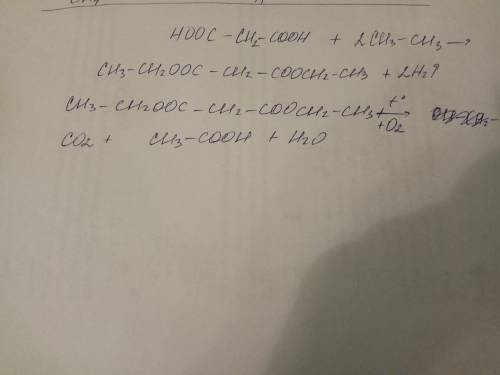 HOOC - CH2 - COOH + 2CH3 - CH3 →
CH3 - CH2OOC - CH2 - COOCH2 - CH3 + 2H2↑
CH3 - CH2OOC - CH2 - COOCH2 - CH3 t° →
+O2
CO2 + CH3 - COOH + H2O